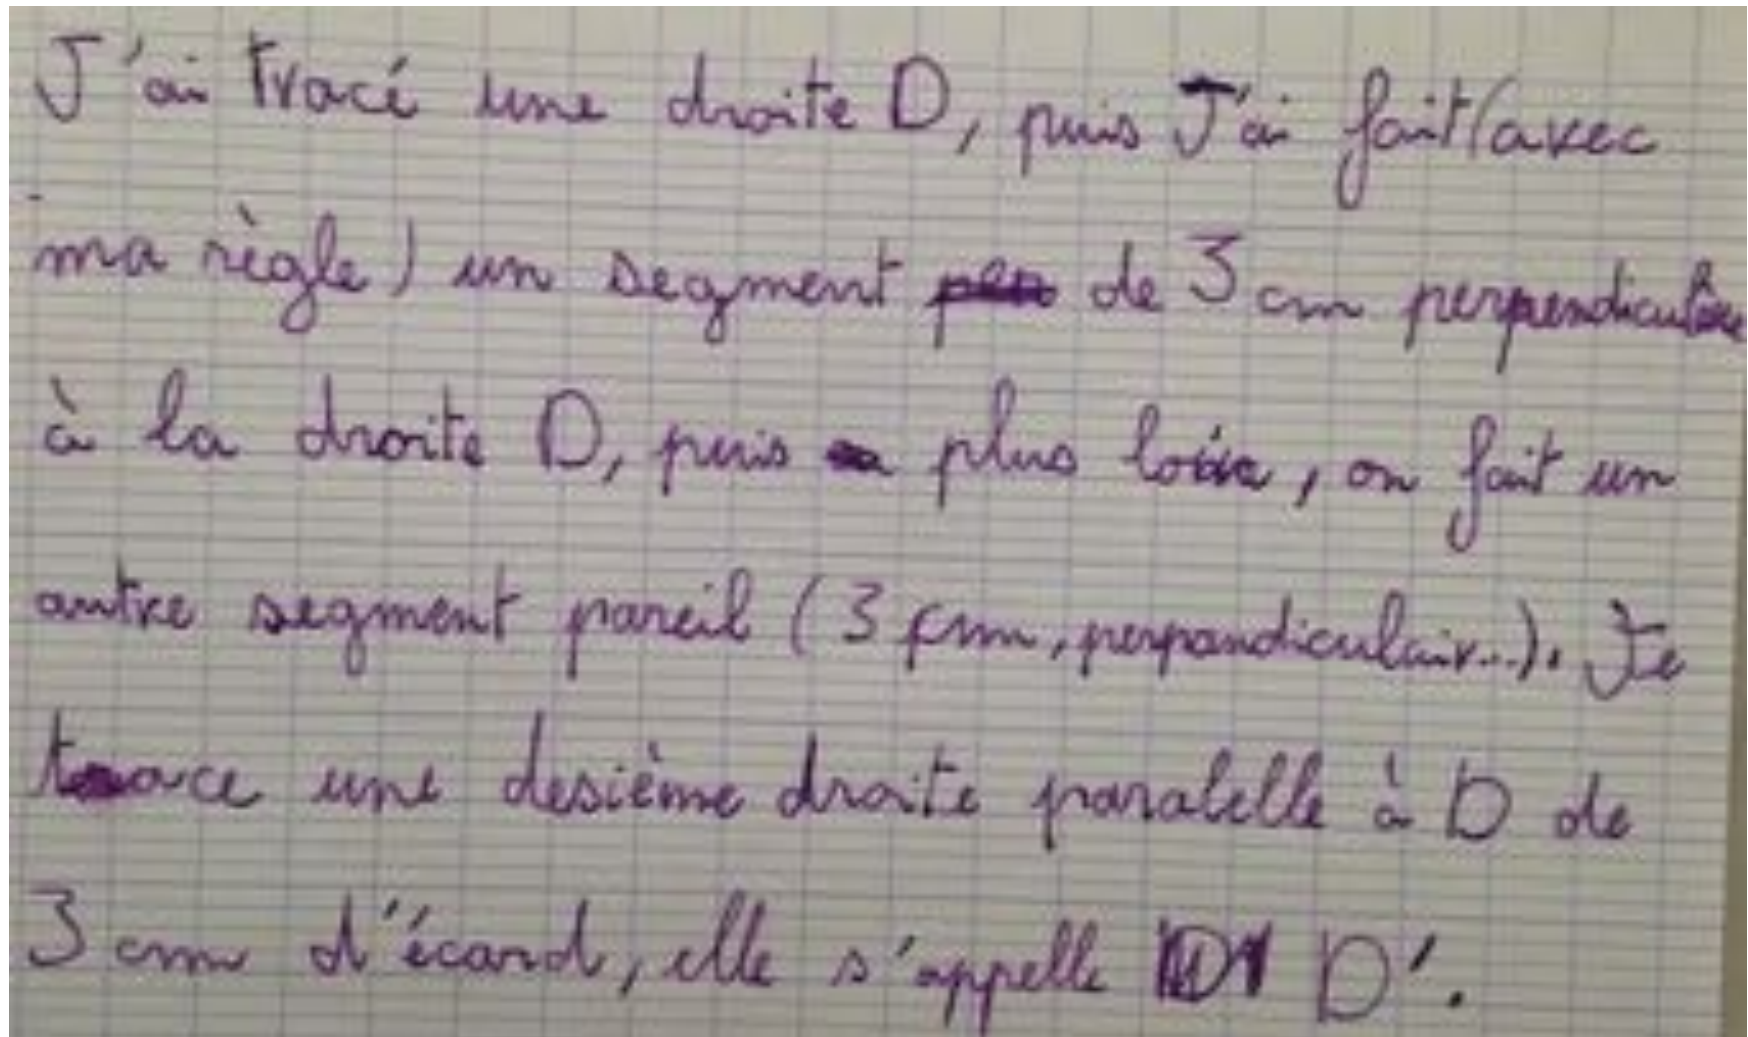 J'ai tracé une droite D, puis J'ai fait (avec
ma règle) un segment de 3 cm perpendiculaire
à la droite D, puis plus loin, on fait un
autre segment pareil (3 cm, perpandiculair...). Je
trace une desième droite paralelle à D de
3 cm d'écard, elle s'appelle D'.